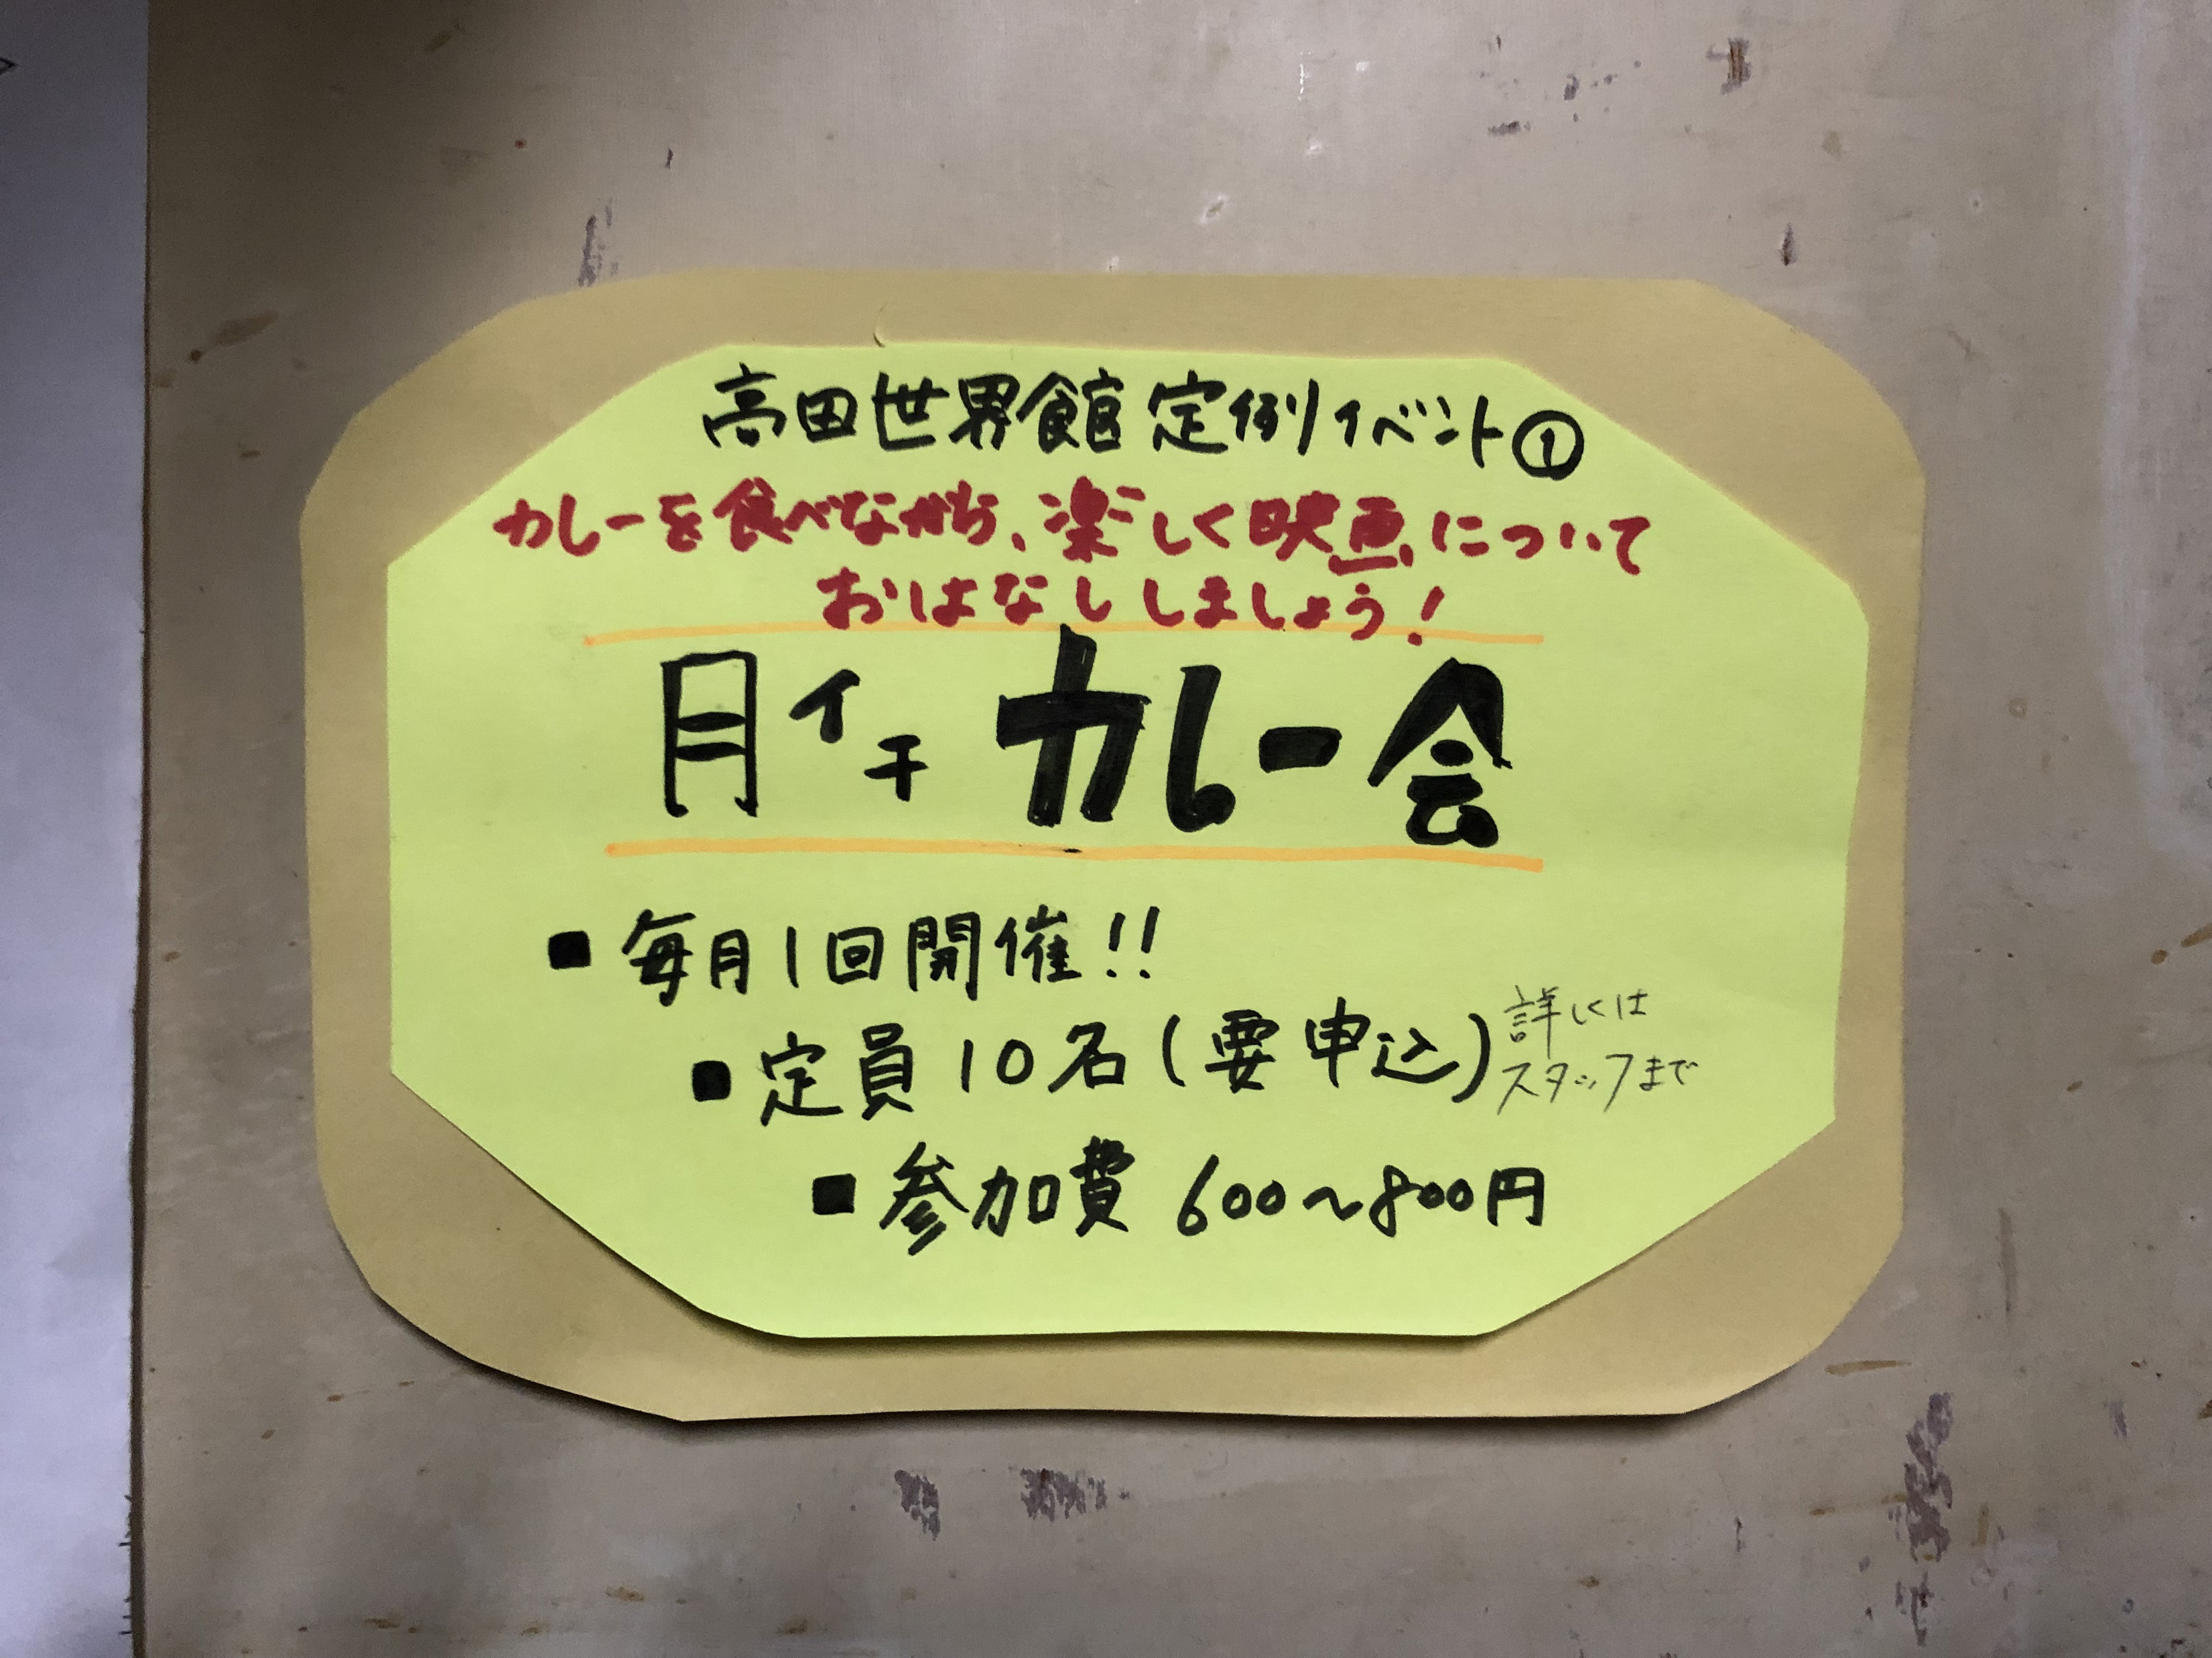 高田世界館 定例イベント①
カレーを食べながら、楽しく映画について
おはなししましょう!
月イチカレー会
■ 毎月1回開催!!
■ 定員 10名(要申込)
詳しくは
スタッフまで
■ 参加費 600〜800円